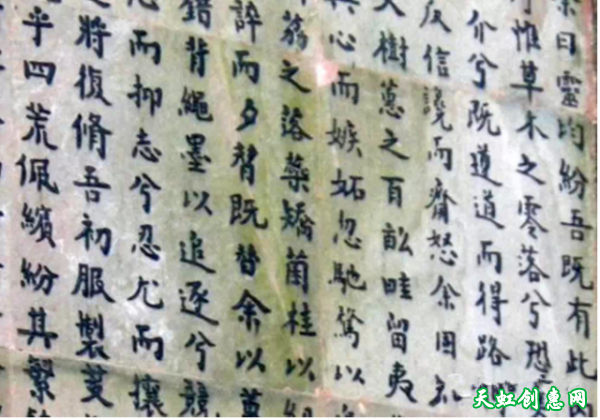 曰靈均紛吾既有此
惟草木之零落兮恐
介兮既遵道而得路
反信讒而齋怒余固知
樹蕙之百畝畦留夷
心而嫉妬忽馳騖以
荔之落蘂矯菌桂以
誶而夕替既替余以蕙
錯背繩墨以追逐兮競
心而抑志兮忍尤而攘
將復脩吾初服製芰
乎四荒佩繽紛其繁
天虹创惠网